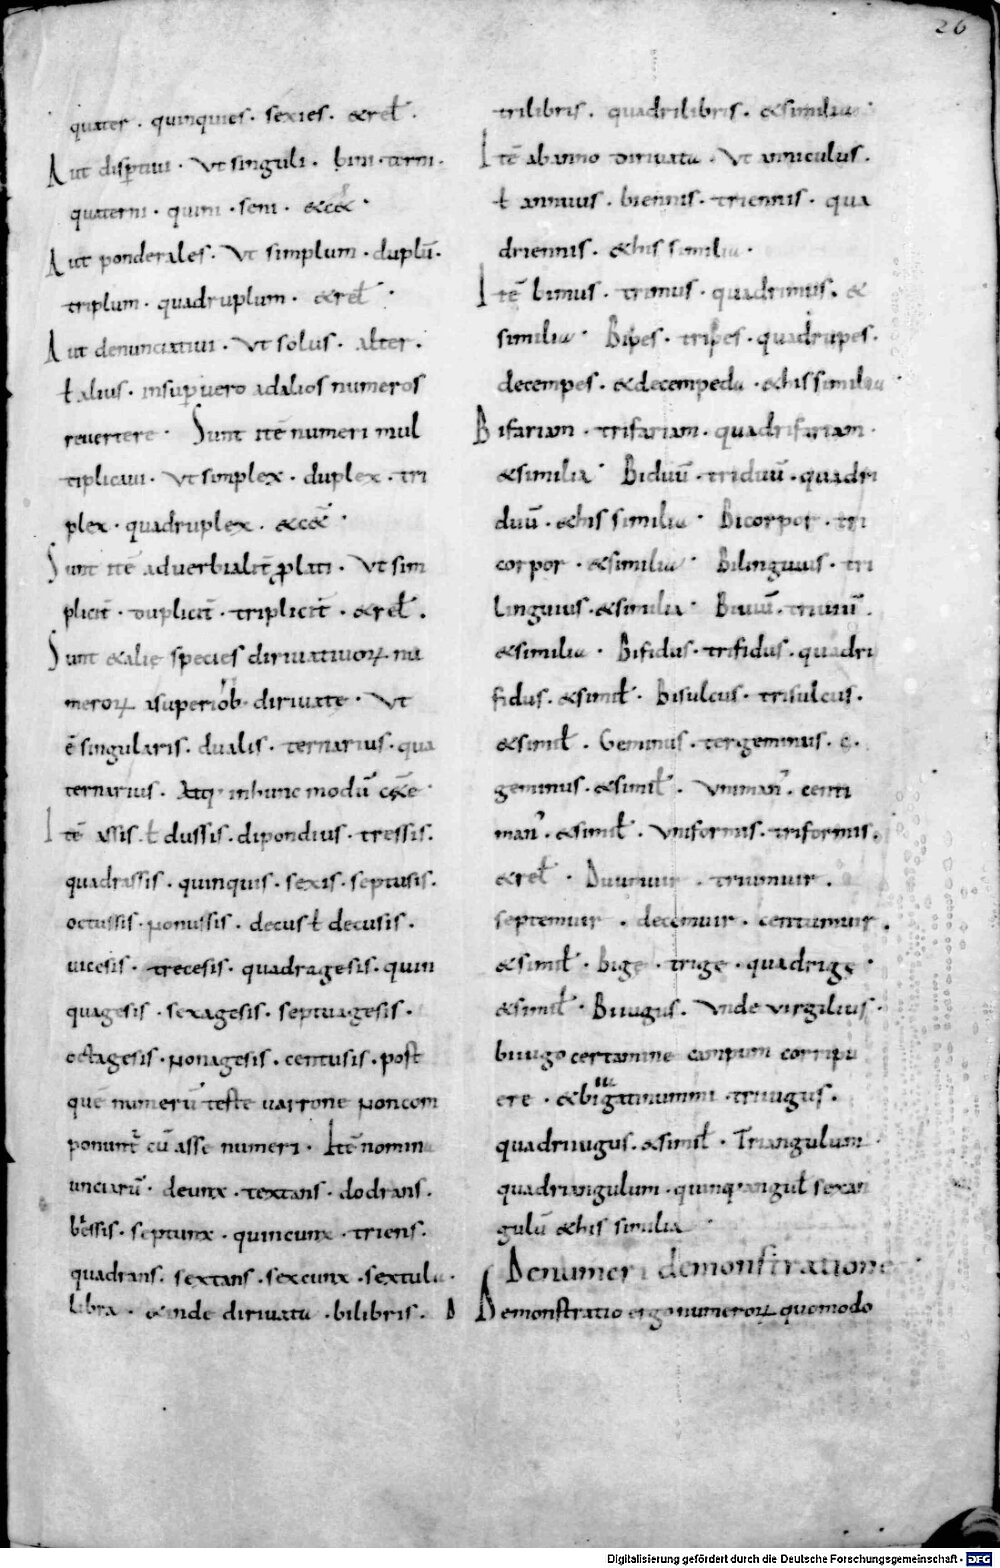 26
quater · quinquies · sexies · & rel̃ ·
Aut disp̱tiui · Vt singuli · bini · terni ·
quaterni · quini · seni · & cẽ ·
Aut ponderales · Vt simplum · duplū ·
triplum · quadruplum · & rel̃ ·
Aut denunciatiui · Vt solus · alter ·
ł alius · insup̱ uero ad alios numeros
reuertere · Sunt itē numeri mul
tiplicaui · Vt simplex · duplex · tri
plex · quadruplex · & cẽ ·
Sunt itē aduerbialit̄ ꝓlati · Vt sim
plicit̄ · duplicit̄ · triplicit̄ · & rel̃ ·
Sunt & alię species diriuatiuoꝝ nu
meroꝝ a superiorib· diriuate · Vt
ē singularis · dualis · ternarius · qua
ternarius · Atq· in hunc modū cęte
Itē assis · ł dussis · dipondius · tressis ·
quadrassis · quinquis · sexis · septusis ·
octussis · nonussis · decus ł decusis ·
uicesis · trecesis · quadragesis · quin
quagesis · sexagesis · septuagesis ·
octagesis · nonagesis · centusis · post
quē numerū teste uarrone non com
ponunt̄ cū asse numeri · Itē nomina
unciarū · deunx · textans · dodrans ·
bessis · septunx · quincunx · triens ·
quadrans · sextans · sexcunx · sextula ·
libra · & inde diriuata · bilibris ·
trilibris · quadrilibris · & similia ·
Itē ab anno diriuata · Vt anniculus ·
ł annuus · biennis · triennis · qua
driennis · & his similia ·
Itē bimus · trimus · quadrimus · &
similia · Bipes · tripes · quadrupes ·
decempes · & decempeda · & his similia ·
Bifariam · trifariam · quadrifariam ·
& similia · Biduū · triduū · quadri
duū · & his similia · Bicorpor · tri
corpor · & similia · Bilinguus · tri
linguus · & similia · Biuiū · triuiū ·
& similia · Bifidus · trifidus · quadri
fidus · & simil̃ · Bisulcus · trisulcus ·
& simil̃ · Geminus · tergeminus ·
geminus · & simil̃ · Vniman̄ · centi
man̄ · & simil̃ · Vniformis · triformis ·
& rel̃ · Duumuir · triumuir ·
septemuir · decemuir · centumuir ·
& simil̃ · bige · trige · quadrigę ·
& simil̃ · Biiugus · Vnde virgilius ·
biiugo certamine campum corripu
ere · & bigati nummi · triiugus ·
quadriiugus · & simil̃ · Triangulum ·
quadriangulum · quinquangul̃ sexan
gulū & his similia ·
De numeri demonstratione ·
Demonstratio ergo numeroꝝ quomodo
Digitalisierung gefördert durch die Deutsche Forschungsgemeinschaft - DFG